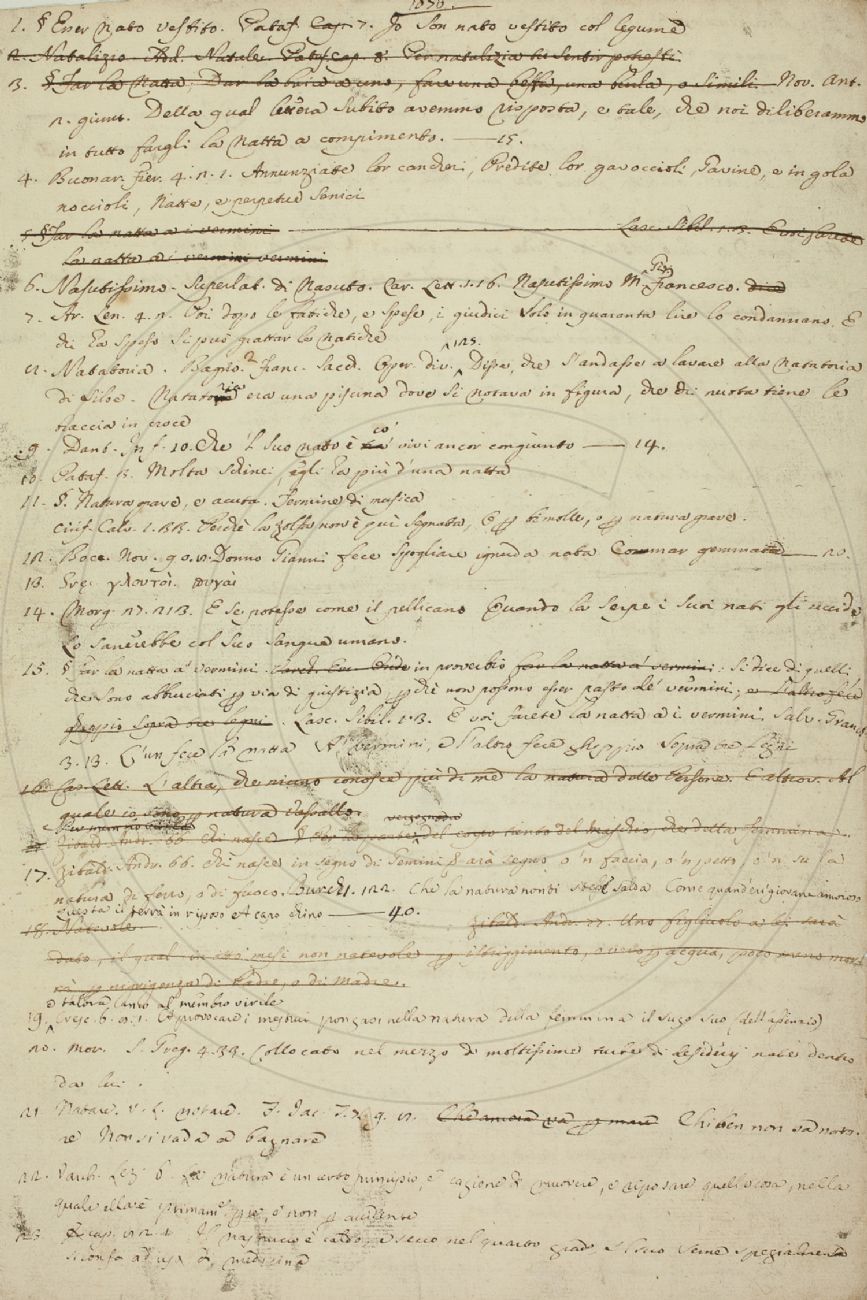 1650.
1. § Esser Nato vestito. Pataf. Cap. 7. Io son nato vestito col legume
2. Natalizio Add. Natale. Pataf. Cap. 8. Per natalizia
3. § Far la Natta, Dar la burla a uno, fare una beffa, una burla, o simili. Nov. Ant.
n. giunt. Della qual lettera subito avemmo risposta, e tale, che noi diliberammo
in tutto fargli la Natta a compimento. — 15.
4. Buonar. Fier. 4. 2. 1. Annunziate lor cancheri, Predite lor gavoccioli, Gavine, e in gola
noccioli, Natte, e perpetue Senici
5 § Far la natta a i vermini — Lasc. Sibil. 1.3. E voi farete
la natta a i vermini vermini
6. Nasutissimo. Superlat. di Nasuto. Car. Lett. 1.16. Nasutissimo M. Gio. Francesco.
7. Ar. Len. 4. 2. Poi dopo le fatiche, e spese, i giudici Solo in quaranta lire lo condannano. E
chi ha speso si può grattar le natiche
Natatoria. Franc. Sacch. Oper. div. 125. Disse, che s'andasse a lavare alla Natatoria
di Siloe. Natatoria era una piscina dove si notava in figura, che chi nuota tiene le
braccia in croce
9. Dant. Inf. 10. Che 'l suo nato è co' vivi ancor congiunto — 14.
10. Pataf. 3. Molta schinci, egli ha più d'una natta
11. §. Natura grave, e acuta. Termine di musica
Ciriff. Calv. 1. la zolfa non è più segnata, E per bemolle, o per natura grave.
12. Bocc. Nov. 90. 2. Donno Gianni fece spogliare ignuda nata Commar gemmata — 20.
13. γλουτοὶ. πυγαι
14. Morg. E se potesse come il pellicano Quando la serpe i suoi nati gli uccide,
Lo sanerebbe col suo sangue umano.
15. § Far la natta a' vermini. in proverbio far la natta a' vermini: si dice di quelli
che sono abbruciati per via di giustizia, perchè non possono esser pasto de' vermini; e l'altro fece
gheppio sopra tre legni. Lasc. Sibil. 1.3. E voi farete la natta a i vermini. Salv. Granch.
3. 13. L'un fece la natta A' vermini, e l'altro fece gheppio sopra tre legni
16. Car. Lett. L'altra, che niuno conosce più di me la natura delle persone. E altrov. Al
quale io sono per natura vassallo.
vergognosa
Zibald. Andr. 66 Chi nasce del corpo tanto del maschio, che della femmina.
17. Zibald. Andr. 66. Chi nasce in segno di Gemini arà segno o 'n faccia, o 'n petto, o 'n su la
natura di ferro, o di fuoco. Burch. 1. 122. Che la natura non ti stesse salda Come quand'eri giovane amoroso
Questa il terrà in riposo e a capo chino — 40.
18. Natevole Zibald. Andr. 27. Uno figliuolo a lei sarà
dato, il qual in otto mesi non natevole o vero per acqua, poco meno mor
rà per nigrigenza di Padre, o di Madre.
e talora, tanto al membro virile
19. Cresc. 6. 2. 1. A provocare i mestrui pongasi nella natura della femmina il sugo suo (dell'assenzio)
20. Mor. S. Greg. 4. 33. Collocato nel mezzo di moltissime turbe di desiderj nate dentro
da lui.
21. Natare. V. L. notare. F. Iac. T. 7. 9. 12. Che ancora va per mare Chi ben non sa nota-
re Non si vada a bagnare
22. Varch. Lez. La natura è un certo principio, e cagione di muovere, e riposare quella cosa, nella
quale ella è e non per accidente
23. Il nasturcio è caldo, e secco nel quarto grado, e 'l suo seme spezialmente
si confa ad uso di medicina